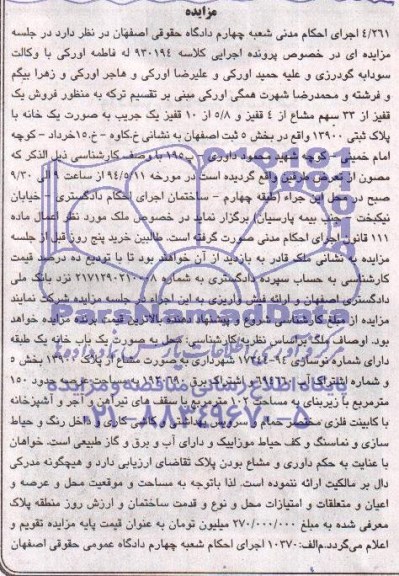 مزایده
۴/۲۶۱ اجرای احکام مدنی شعبه چهارم دادگاه حقوقی اصفهان در نظر دارد در جلسه
مزایده ای در خصوص پرونده اجرایی کلاسه ۹۳۰۱۹۴ له فاطمه اورکی با وکالت
سودابه گودرزی و علیه حمید اورکی و علیرضا اورکی و هاجر اورکی و زهرا بیگم
و فرشته و محمدرضا شهرت همگی اورکی مبنی بر تقسیم ترکه به منظور فروش یک
قفیز از ۳۳ سهم مشاع از ۴ قفیز و ۵/۸ از ۱۰ قفیز یک جریب به صورت یک خانه با
پلاک ثبتی ۱۳۹۰۰ واقع در بخش ۵ ثبت اصفهان به نشانی خ.کاوه - خ.۱۵خرداد - کوچه
امام خمینی - کوچه شهید محمود داوری - پ۱۹۵ با وصف کارشناسی ذیل الذکر که
مصون از تعرض طرفین واقع گردیده است در مورخه ۹۴/۵/۱۱ از ساعت ۹ الی ۹/۳۰
صبح در محل این اجراء (طبقه چهارم - ساختمان اجرای احکام دادگستری - خیابان
نیکبخت - جنب بیمه پارسیان) برگزار نماید در خصوص ملک مورد نظر اعمال ماده
۱۱۱ قانون اجرای احکام مدنی صورت گرفته است. طالبین خرید پنج روز قبل از جلسه
مزایده به نشانی ملک قادر به بازدید از آن خواهند بود تا با تودیع ده درصد قیمت
کارشناسی به حساب سپرده دادگستری به شماره نزد بانک ملی
دادگستری اصفهان و ارائه فیش واریزی به این اجراء در جلسه مزایده شرکت نمایند
مزایده از مبلغ کارشناسی شروع و پیشنهاد دهنده بالاترین قیمت برنده مزایده خواهد
بود. اوصاف ملک براساس نظریه کارشناسی: محل به صورت یک باب خانه یک طبقه
دارای شماره نوسازی شهرداری به صورت مشاع از پلاک ۱۳۹۰۰ بخش ۵
و شماره اشتراک آب و اشتراک برق به مساحت عرصه حدود ۱۵۰
مترمربع با زیربنای به مساحت ۱۰۲ مترمربع با سقف های تیرآهن و آجر و آشپزخانه
با کابینت فلزی مختصر حمام و سرویس بهداشتی و کاشی کاری و داخل رنگ و حیاط
سازی و نماسنگ و کف حیاط موزاییک و دارای آب و برق و گاز طبیعی است. خواهان
با عنایت به حکم داوری و مشاع بودن پلاک تقاضای ارزیابی دارد و هیچگونه مدرکی
دال بر مالکیت ارائه ننموده است. لذا باتوجه به مساحت و موقعیت محل و عرصه و
اعیان و متعلقات و امتیازات محل و نوع و قدمت ساختمان و ارزش روز منطقه پلاک
معرفی شده به مبلغ ۲۷۰/۰۰۰/۰۰۰ میلیون تومان به عنوان قیمت پایه مزایده تقویم و
اعلام می‌گردد.م‌الف:۱۰۳۷۰ اجرای احکام شعبه چهارم دادگاه عمومی حقوقی اصفهان
ParsNamadData
پایگاه اطلاع رسانی مناقصه مزایده
۰۲۱-۸۸۳۴۹۶۷۰-۵